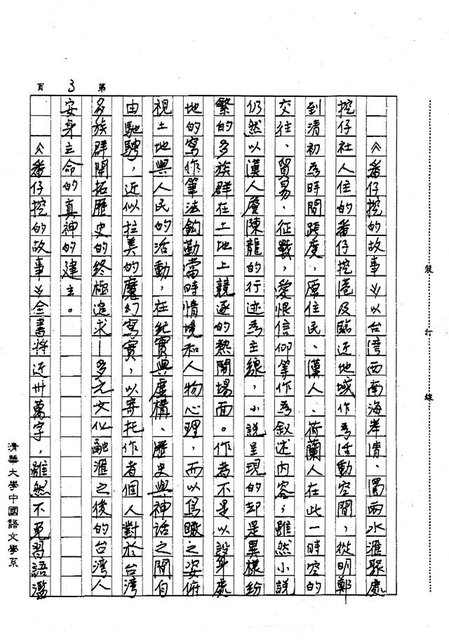 裝訂線
《番仔挖的故事》以台湾西南海岸濁水滙聚處
挖仔社人住的番仔挖及臨近地域作為活動空間，從明鄭
到清初為時間跨度，原住民、漢人、荷蘭人在此一時空的
交往、貿易、征戰，愛恨信仰等作為叙述内容，雖然小說
仍然以漢人陳龍的行迹為主線，小說呈現的却是異樣紛
繁的多族群在土地上競逐的熱鬧場面。作者不是以設身處
地的寫作筆法鈎勒當時情境和人物心理，而以鳥瞰之姿俯
視土地與人民的活動，在紀實與虛構、歷史與神話之間自
由馳騁，近似拉美的魔幻寫實，以寄托作者個人對於台灣
第3頁
多族群開拓歷史的終極追求—多元文化融滙之後的台灣人
安身立命的真神的建立。
《番仔挖的故事》全書將近卅萬字，雖然不免習語濫
清華大學中國語文學系